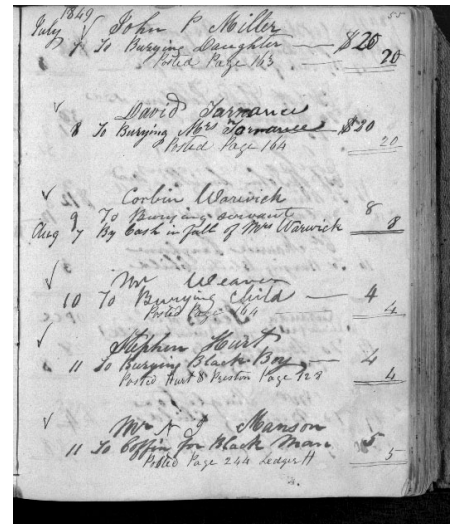 1849
July √ John P Miller
7 To Burying Daughter — $20
Posted Page 163 20
√ David Torrance
8 To Burying Mrs Torrance — $20
Posted Page 164 20
√ Corbin Warwick
9 To Burying servant 8
Aug 7 By Cash in full of Mrs Warwick 8
√ Mr Weaver
10 To Burying Child — 4
Posted Page 164 4
√ Stephen Hurt
11 To Burying Black Boy — 4
Posted Hurt & Preston Page 128 4
√ Mr N Manson
11 To Coffin for Black Man 5
Posted Page 244 Ledger H 5